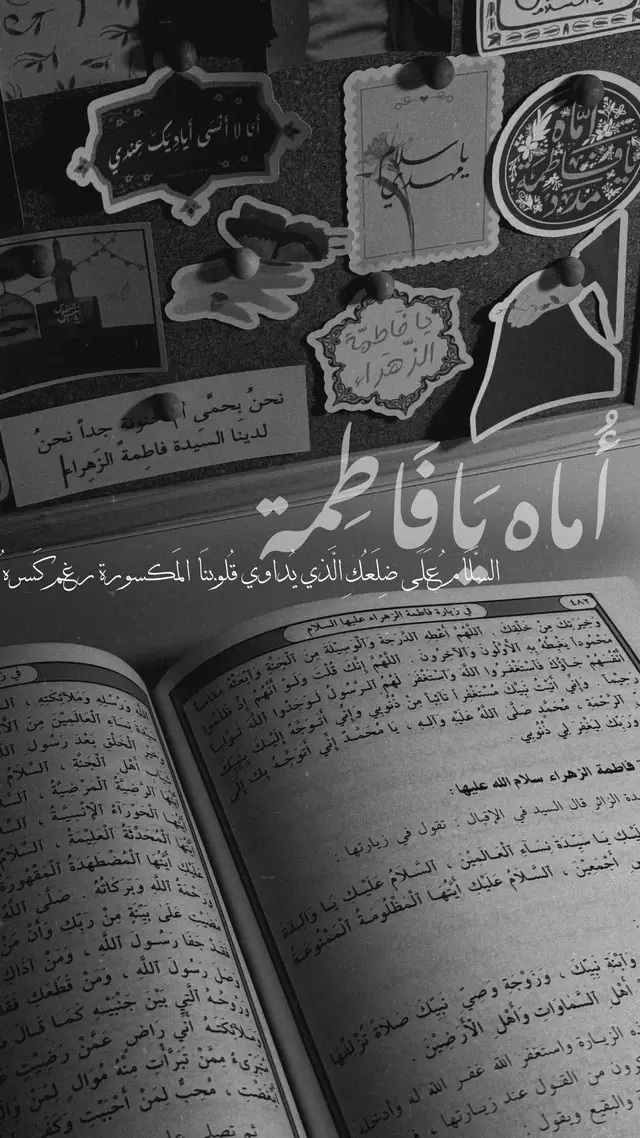 السلام
أنا لا أنسى أياديك عندي
يا سلام
يا مهدي
أماه
يا فاطمة
مدد
يا فاطمة
الزهراء
نحنُ بحمى أم حنونة جداً نحنُ
لدينا السيدة فاطمةُ الزهراء
أُماه يَافَاطِمة
السَّلَامُ عَلَى ضِلعَكِ الَّذي يُداوي قُلوبنَا المَكسورة رغم كَسره
في زيارة فاطمة الزهراء عليها السلام
٤٨٢
وَخِيَرَتِكَ مِنْ خَلْقِكَ . اَللّٰهُمَّ أَعْطِهِ الدَّرَجَةَ وَالْوَسِيلَةَ مِنَ الْجَنَّةِ وَابْعَثْهُ مَقَاماً
مَحْمُوداً يَغْبِطُهُ بِهِ الْأَوَّلُونَ وَالْآخِرُونَ . اَللّٰهُمَّ إِنَّكَ قُلْتَ وَلَوْ أَنَّهُمْ إِذْ ظَلَمُوا
أَنْفُسَهُمْ جَاؤُكَ فَاسْتَغْفَرُوا اللَّهَ وَاسْتَغْفَرَ لَهُمُ الرَّسُولُ لَوَجَدُوا اللَّهَ تَوَّاباً
رَحِيماً . وَإِنِّي أَتَيْتُ نَبِيَّكَ مُسْتَغْفِراً تَائِباً مِنْ ذُنُوبِي وَإِنِّي أَتَوَجَّهُ إِلَيْكَ بِنَبِيِّكَ
الرَّحْمَةِ ، مُحَمَّدٍ صَلَّى اللَّهُ عَلَيْهِ وَآلِهِ ، يَا مُحَمَّدُ إِنِّي أَتَوَجَّهُ بِكَ إِلَى
وَرَبِّكَ لِيَغْفِرَ لِي ذُنُوبِي .
فاطمة الزهراء سلام الله عليها :
الزائر قال السيد في الإقبال : تقول في زيارتها :
يَا سَيِّدَةَ نِسَاءِ الْعَالَمِينَ ، اَلسَّلَامُ عَلَيْكِ يَا وَالِدَةَ
أَجْمَعِينَ ، اَلسَّلَامُ عَلَيْكِ أَيَّتُهَا الْمَظْلُومَةُ الْمَمْنُوعَةُ
وَابْنَةِ نَبِيِّكَ ، وَزَوْجَةِ وَصِيِّ نَبِيِّكَ صَلَاةً تُزْلِفُهَا
أَهْلِ السَّمَاوَاتِ وَأَهْلِ الْأَرَضِينَ .
الزيارة واستغفر الله غفر الله له وأدخله
من القول عند زيارتها ،
والبقيع ويقول :
في
وَرُسُلَهُ وَمَلَائِكَتَهُ ،
نِسَاءِ الْعَالَمِينَ مِنَ
الْخَلْقِ بَعْدَ رَسُولِ
أَهْلِ الْجَنَّةِ ، اَلسَّلَامُ
الرَّضِيَّةُ الْمَرْضِيَّةُ ،
الْحَوْرَاءُ الْإِنْسِيَّةُ ،
الْمُحَدَّثَةُ الْعَلِيمَةُ ، اَلسَّلَامُ
أَيَّتُهَا الْمُضْطَهَدَةُ الْمَقْهُورَةُ
وَرَحْمَةُ اللَّهِ وَبَرَكَاتُهُ . صَلَّى اللَّهُ
مَضَيْتِ عَلَى بَيِّنَةٍ مِنْ رَبِّكِ وَأَنَّ مَنْ
فَقَدْ جَفَا رَسُولَ اللَّهِ ، وَمَنْ آذَاكِ
وَصَلَ رَسُولَ اللَّهِ ، وَمَنْ قَطَعَكِ فَقَدْ
وَرُوحُهُ الَّتِي بَيْنَ جَنْبَيْهِ كَمَا قَالَ
وَمَلَائِكَتَهُ أَنِّي رَاضٍ عَمَّنْ رَضِيتِ
مُتَبَرِّئٌ مِمَّنْ تَبَرَّأْتِ مِنْهُ مُوَالٍ لِمَنْ
أَبْغَضْتِ ، مُحِبٌّ لِمَنْ أَحْبَبْتِ وَكَفَى
ثم تصلي على